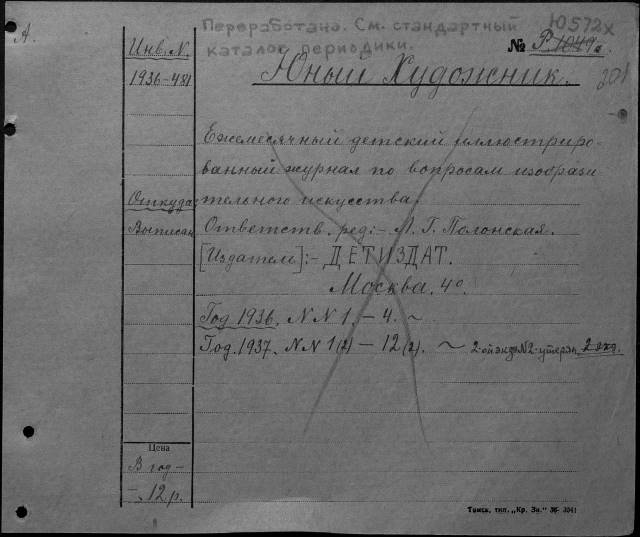 А.
Переработана. См. стандартный
каталог периодики.
Ю572х
№ Р. 1049а.
201
Инв. N.
1936-481
Юный Художник.
Ежемесячный детский иллюстриро-
ванный журнал по вопросам изобрази
тельного искусства.
Откуда
Выписан
Ответств. ред:- Л. Г. Полонская.
[Издатель]:- ДЕТИЗДАТ.
Москва. 4°.
Год 1936. NN 1. - 4. ~
Год. 1937. NN 1(2) - 12(2). ~ 2-ой экз №2-утерян. 2 экз.
Цена
В год -
-. 12 р.
Томск, тип. „Кр. Зн."